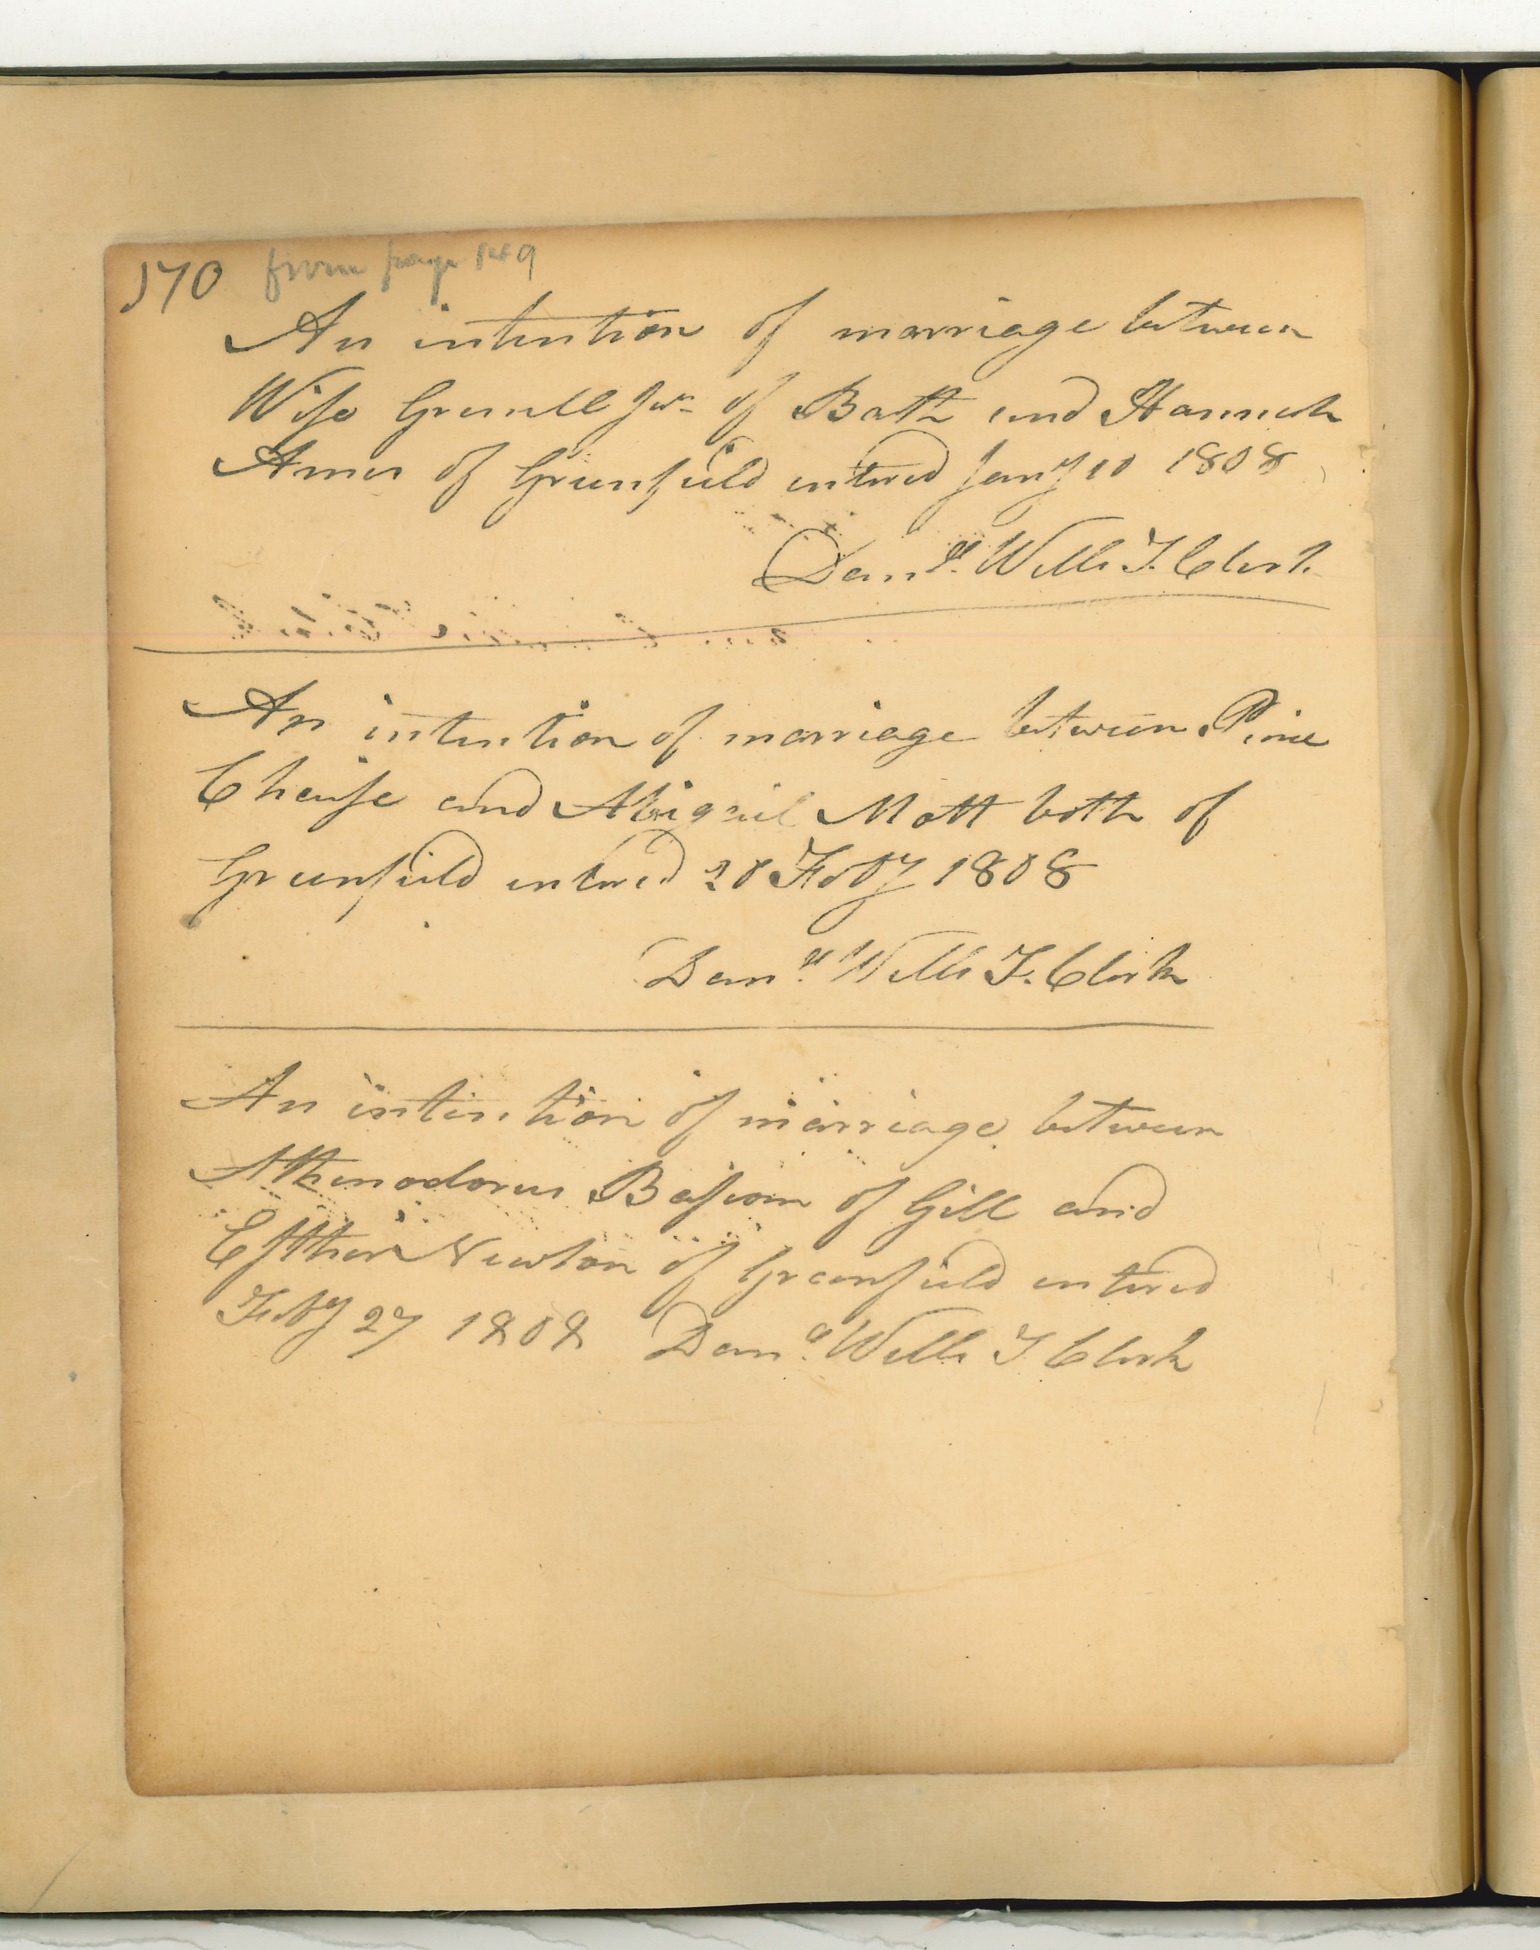 170 from page 149
An intention of marriage between
Wise Grinnell Jur of Bath and Hannah
Ames of Greenfield entered Jany 10 1808
Danll. Wells T. Clerk
An intention of marriage between
Chaise and Abigail Mott both of
Greenfield entered 20 Feby 1808
Danll. Wells T. Clerk
An intention of marriage between
Athenodorus Bascom of Gill and
Esther Newton of Greenfield entered
Feby 27 1808 Danll. Wells T Clerk